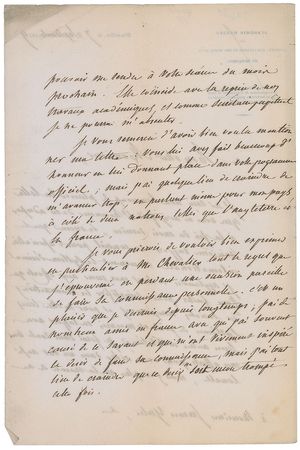 pouvoir me rendre à votre séance du mois
prochain. Elle coïncide avec la reprise de nos
travaux académiques, et comme Secrétaire perpétuel
je ne pourrai m'absenter.
Je vous remercie d'avoir bien voulu mention
ner ma lettre. Vous lui avez fait beaucoup d'
honneur en lui donnant place dans votre programme
officiel, mais j'ai quelque lieu de craindre de
m'avancer trop, en parlant même pour mon pays
à côté de deux nations telles que l'angleterre et
la france.
Je vous prierai de vouloir bien exprimer
en particulier à Mr. Chevalier tout le regret que
j'éprouve en perdant une occasion pareille
de faire sa connaissance personnelle. c'est un
plaisir que je désirais depuis longtemps; j'ai de
nombreux amis en france avec qui j'ai souvent
causé de ce savant et qui m'ont vivement inspiré
le désir de faire sa connaissance, mais j'ai tout
lieu de craindre que ce désir ne soit encore trompé
cette fois.